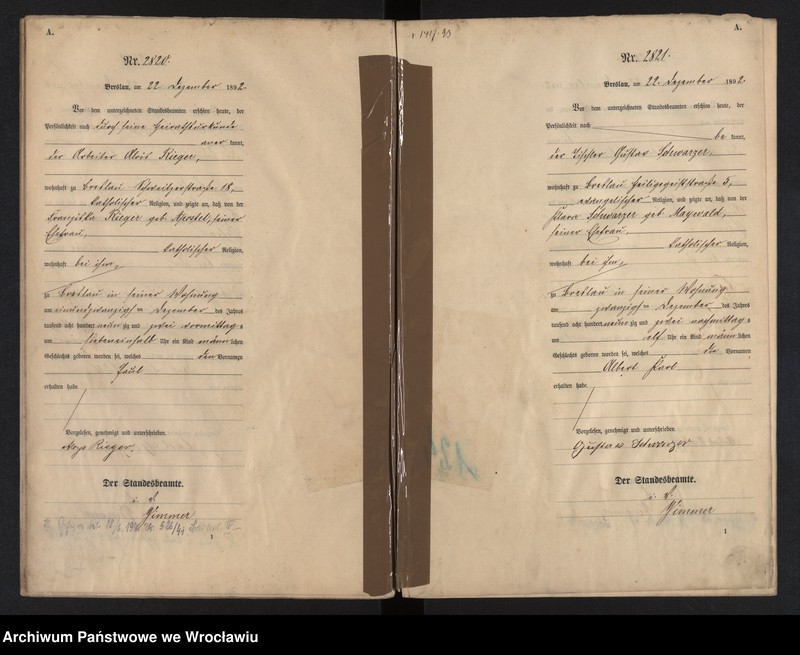 A.
Nr. 2820.
Breslau, am 22. Dezember 1892.
Vor dem unterzeichneten Standesbeamten erschien heute, der
Persönlichkeit nach durch seine Heirathsurkunde
aner kannt,
der Arbeiter Alois Rieger,
wohnhaft zu Breslau Schweitzerstraße 18,
katholischer Religion, und zeigte an, daß von der
Franziska Rieger geb. Apostel, seiner
Ehefrau,
katholischer Religion,
wohnhaft bei ihm,
zu Breslau in seiner Wohnung
am einundzwanzigsten Dezember des Jahres
tausend acht hundert neun zig und zwei vormittags
um siebeneinhalb Uhr ein Kind männlichen
Geschlechts geboren worden sei, welches den Vornamen
Paul
erhalten habe.
Vorgelesen, genehmigt und unterschrieben.
Aloys Rieger.
Der Standesbeamte.
i. V.
Zimmer
1
A.
Nr. 2821.
Breslau, am 22. Dezember 1892.
Vor dem unterzeichneten Standesbeamten erschien heute, der
Persönlichkeit nach
be kannt,
der Tischler Gustav Schwarzer,
wohnhaft zu Breslau Heiligegeiststraße 5,
evangelischer Religion, und zeigte an, daß von der
Klara Schwarzer geb. Maywald,
seiner Ehefrau,
katholischer Religion,
wohnhaft bei ihm,
zu Breslau in seiner Wohnung
am zwanzigsten Dezember des Jahres
tausend acht hundert neun zig und zwei nachmittags
um elf Uhr ein Kind männlichen
Geschlechts geboren worden sei, welches die Vornamen
Albert Karl
erhalten habe.
Vorgelesen, genehmigt und unterschrieben.
Gustav Schwarzer
Der Standesbeamte.
i. V.
Zimmer
1
Archiwum Państwowe we Wrocławiu